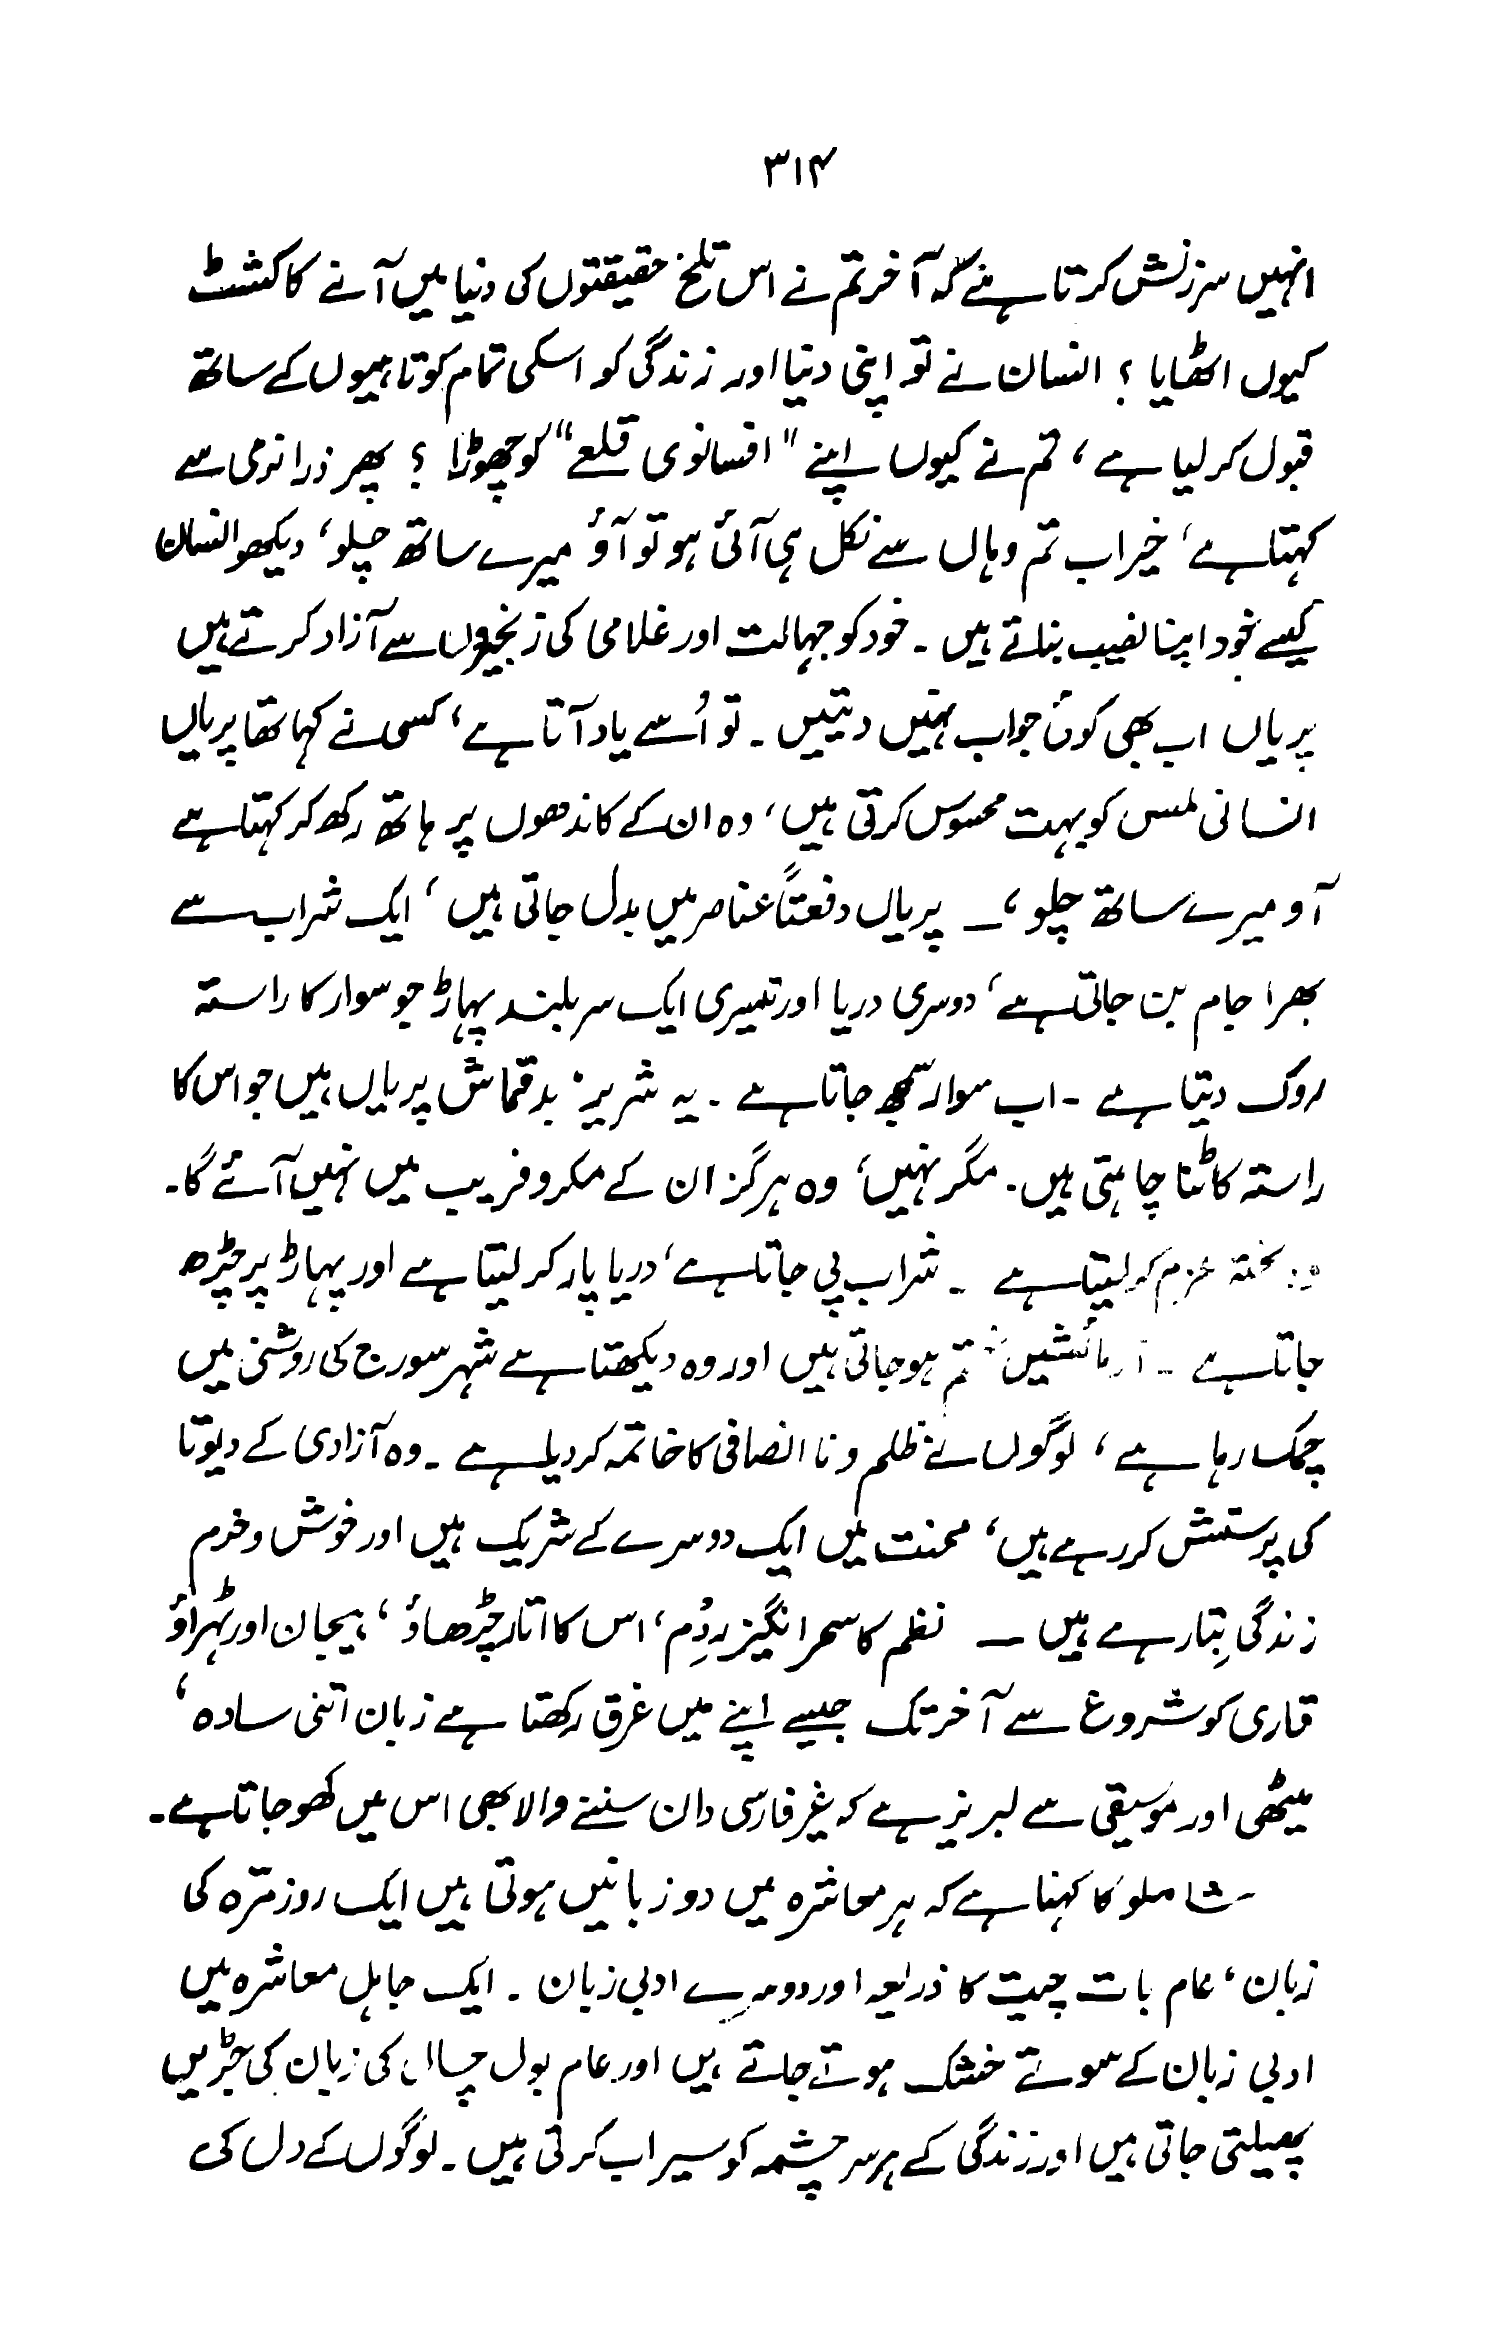 ۳۱۴
انہیں سرزنش کرتا ہے کہ آخر تم نے اس تلخ حقیقتوں کی دنیا میں آنے کا کشٹ
کیوں اٹھایا ؟ انسان نے تو اپنی دنیا اور زندگی کو اسکی تمام کوتاہیوں کے ساتھ
قبول کر لیا ہے ، تم نے کیوں اپنے " افسانوی قلعے" کو چھوڑا ؟ پھر ذرا نرمی سے
کہتا ہے ، خیر اب تم وہاں سے نکل ہی آئی ہو تو آؤ میرے ساتھ چلو ، دیکھو انسان
کیسے خود اپنا نصیب بناتے ہیں ۔ خود کو جہالت اور غلامی کی زنجیروں سے آزاد کرتے ہیں
پریاں اب بھی کوئی جواب نہیں دیتیں ۔ تو اُسے یاد آتا ہے ، کسی نے کہا تھا پریاں
انسانی لمس کو بہت محسوس کرتی ہیں ، وہ ان کے کاندھوں پر ہاتھ رکھ کر کہتا ہے
آو میرے ساتھ چلو ، ــ پریاں دفعتاً عناصر میں بدل جاتی ہیں ، ایک شراب سے
بھرا جام بن جاتی ہے ، دوسری دریا اور تیسری ایک سر بلند پہاڑ جو سوار کا راستہ
روک دیتا ہے ۔ اب سوار سمجھ جاتا ہے ۔ یہ شریر ، بدقماش پریاں ہیں جو اس کا
راستہ کاٹنا چاہتی ہیں ۔ مگر نہیں ، وہ ہرگز ان کے مکر و فریب میں نہیں آئے گا ۔
وہ پختہ عزم کر لیتا ہے ۔ شراب پی جاتا ہے ، دریا پار کر لیتا ہے اور پہاڑ پر چڑھ
جاتا ہے ۔ آزمائشیں ختم ہو جاتی ہیں اور وہ دیکھتا ہے شہر سورج کی روشنی میں
چمک رہا ہے ، لوگوں نے ظلم و نا انصافی کا خاتمہ کر دیا ہے ۔ وہ آزادی کے دیوتا
کی پرستش کر رہے ہیں ، محنت میں ایک دوسرے کے شریک ہیں اور خوش و خرم
زندگی بِتا رہے ہیں ــ نظم کا سحر انگیز رِدُم ، اس کا اتار چڑھاؤ ، ہیجان اور ٹہراؤ
قاری کو شروع سے آخر تک جیسے اپنے میں غرق رکھتا ہے زبان اتنی سادہ ،
میٹھی اور موسیقی سے لبریز ہے کہ غیر فارسی دان سننے والا بھی اس میں کھو جاتا ہے ۔
شاملو کا کہنا ہے کہ ہر معاشرہ میں دو زبانیں ہوتی ہیں ایک روزمرّہ کی
زبان ، عام بات چیت کا ذریعہ اور دوسرے ادبی زبان ۔ ایک جاہل معاشرہ میں
ادبی زبان کے سوتے خشک ہوتے جاتے ہیں اور عام بول چال کی زبان کی جڑیں
پھیلتی جاتی ہیں اور زندگی کے ہر سر چشمہ کو سیراب کرتی ہیں ۔ لوگوں کے دل کی